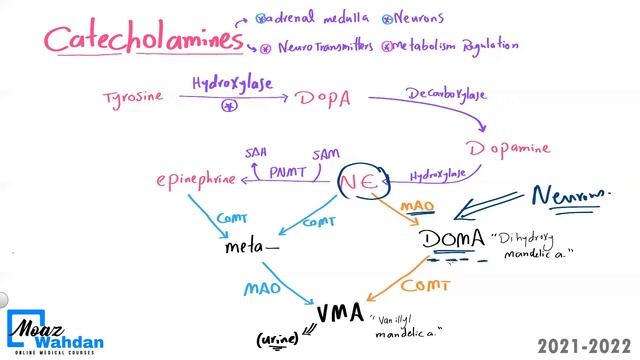 Catecholamines
adrenal medulla Neurons
NeuroTransmitters metabolism Regulation
Tyrosine Hydroxylase DOPA Decarboxylase
Dopamine
epinephrine SAH PNMT SAM NE Hydroxylase
Neurons.
COMT COMT MAO
meta— DOMA "Dihydroxy
mandelic a."
MAO COMT
VMA "Vanillyl
mandelic a."
(urine)
Moaz
Wahdan
ONLINE MEDICAL COURSES
2021-2022